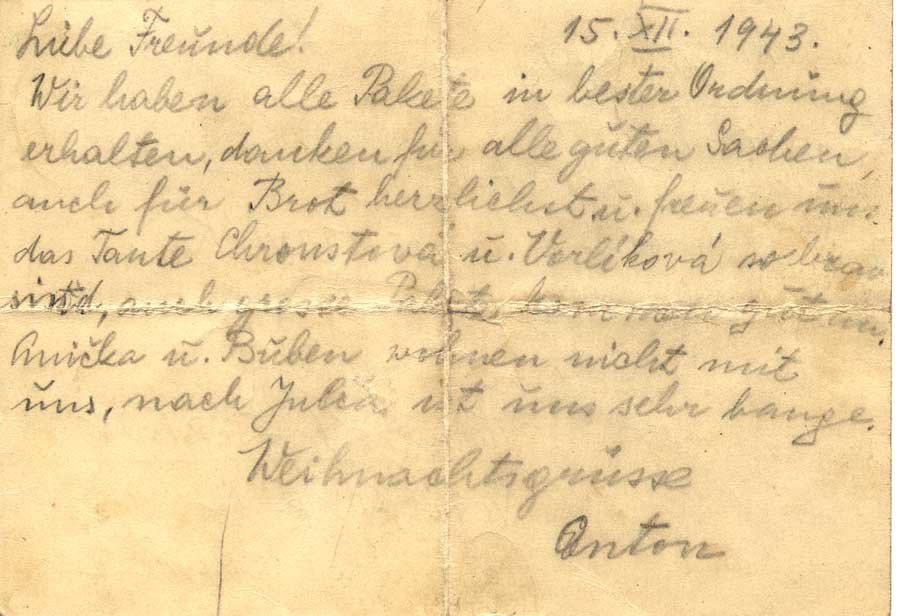 Liebe Freunde! 15. XII. 1943.
Wir haben alle Pakete in bester Ordnung
erhalten, danken für alle guten Sachen,
auch für Brot herrlichst u. freuen uns
das Tante Chroustová u. Vorlíková so brav
sind, auch grosse Pakete kommen gut an.
Anička u. Buben wohnen nicht mit
uns, nach Julča ist uns sehr bange.
Weihnachtsgrüsse
Anton